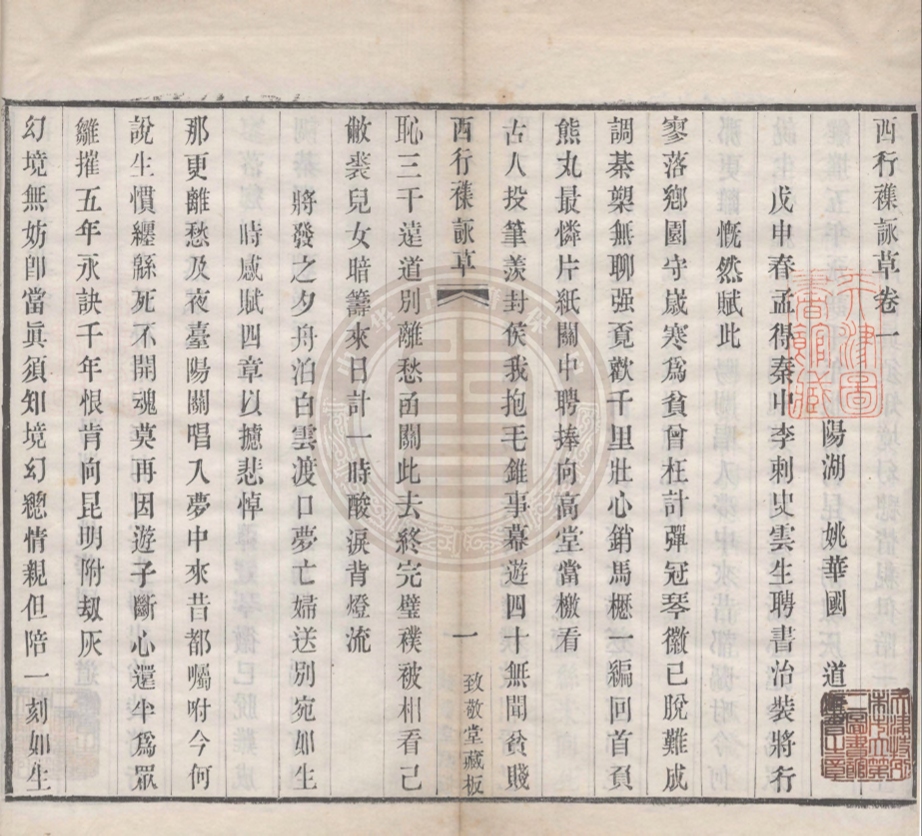 西行襍詠草卷一
陽湖 姚華國 道
戊申春孟得秦中李刺史雲生聘書治裝將行
慨然賦此
寥落鄉園守歲寒爲貧曾枉計彈冠琴徽已脫難成
調棊槊無聊强覓歡千里壯心銷馬櫪一編回首負
熊丸最憐片紙關中聘捧向高堂當檄看
古人投筆羨封侯我抱毛錐事幕遊四十無聞貧賤
西行襍詠草
一
致敬堂藏板
恥三千遠道別離愁函關此去終完璧襆被相看已
敝裘兒女暗籌來日計一時酸淚背燈流
將發之夕舟泊白雲渡口夢亡婦送別宛如生
時感賦四章以摅悲悼
那更離愁及夜臺陽關唱入夢中來昔都囑咐今何
說生慣纏緜死不開魂莫再因遊子斷心還半爲眾
雛摧五年永訣千年恨肯向昆明附刼灰
幻境無妨卽當眞須知境幻總情親但陪一刻如生
天津圖書館藏